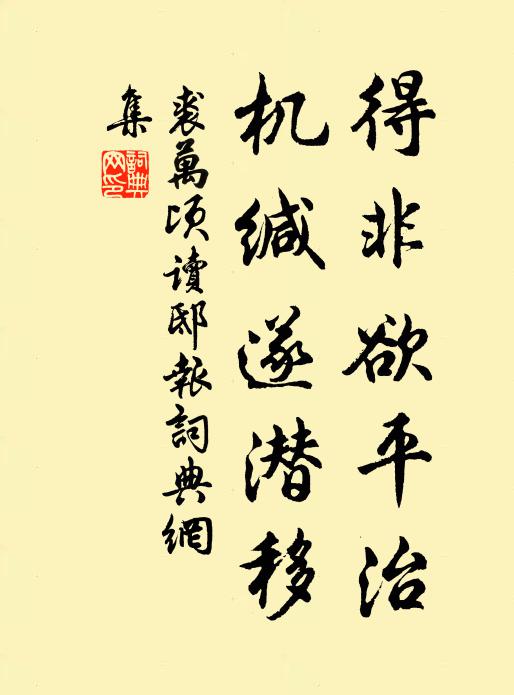 得非欲平治
机缄遂潜移
裘萬頃讀邸報詞典網
集
詞典
网印